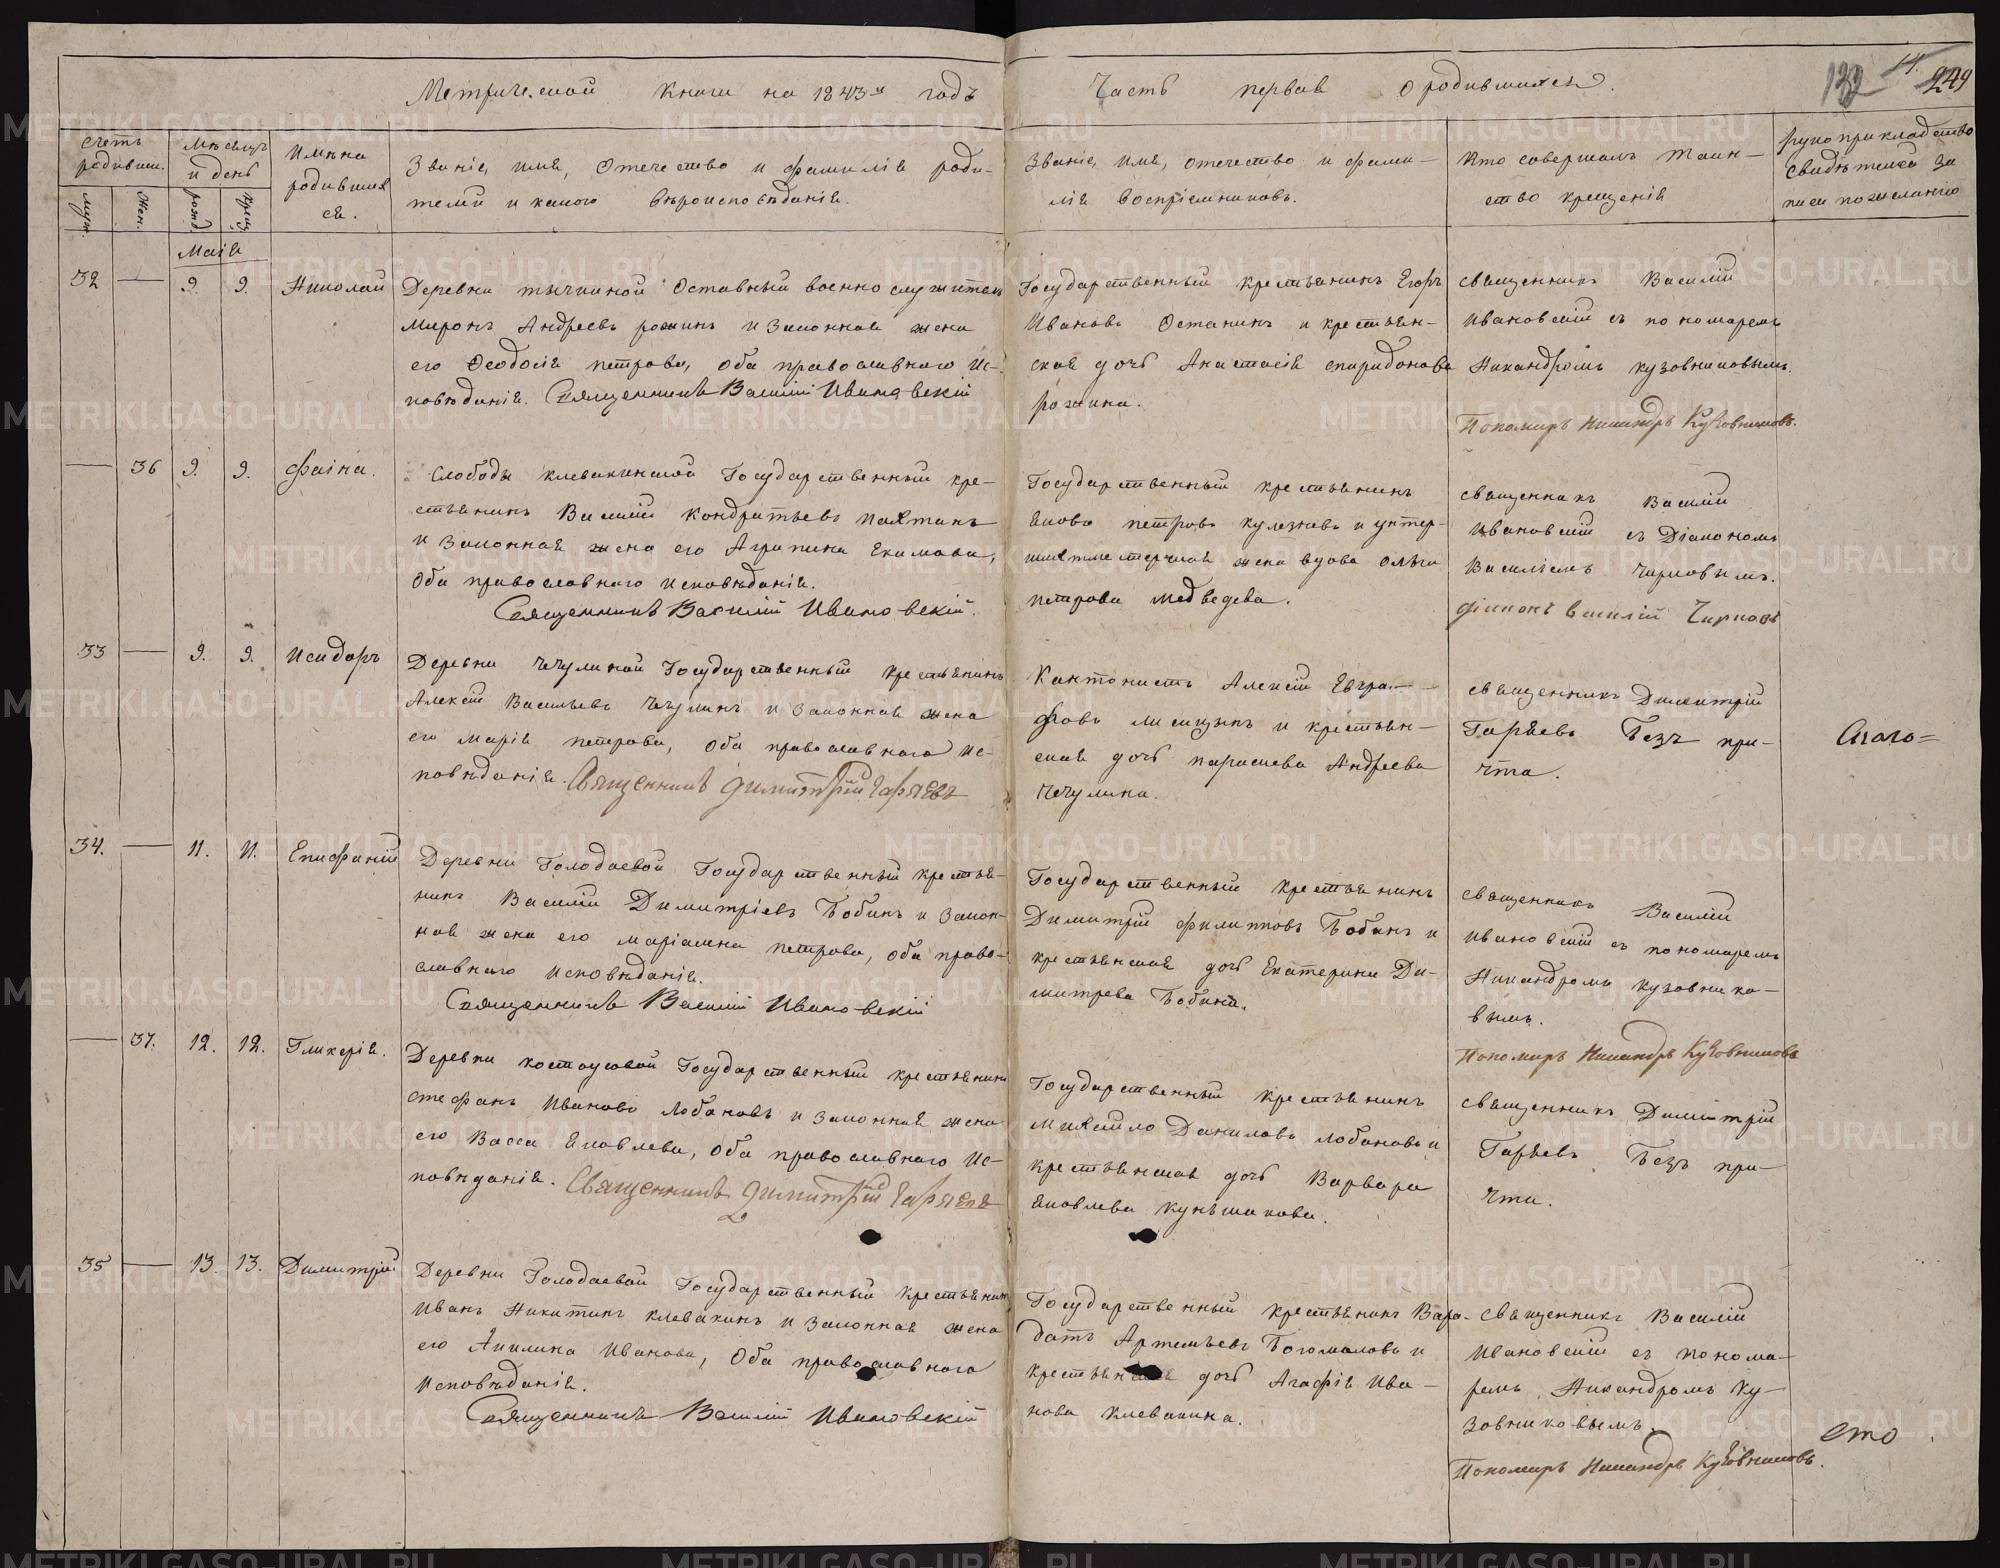 Метрической книги на 1843й годъ
Часть первая о родившихся.
132
249
Счетъ родивши.
муж.
жен.
Мѣсяцъ и день
рожд
крещ
Имѣна родившихся.
Званіе, имя, отечество и фамилія роди-
телей и какого вѣроисповѣданія.
Званіе, имя, отечество и фами-
лія воспріемниковъ.
Кто совершалъ таин-
ство крещенія
рукоприкладство
свидѣтелей за
писи по желанію
Маія
32 — 9. 9. Николай
Деревни тычкиной Оставный военно служитель
Миронъ Андреевъ рожинъ и Законная жена
его Ѳеодосія петрова, оба православнаго ис-
повѣданія. Священникъ Василій Ивановскій
Государственный крестьянинъ Егоръ
Ивановъ Останинъ и крестьян-
ская дочь Анастасія спиридонова
рожина.
священникъ Василій
Ивановскій съ пономаремъ
Никандромъ кузовниковымъ.
Пономарь Никандръ Кузовниковъ.
— 36 9. 9. Фаина.
Слободы клевакинской Государственный кре-
стьянинъ Василій кондратьевъ пахтинъ
и Законная жена его Агрипина Екимова,
Оба православнаго исповѣданія.
Священникъ Василій Ивановскій.
Государственный крестьянинъ
Яковъ петровъ кулезневъ и унтер-
шихтместерская жена вдова Ольга
петрова медведева.
священникъ Василій
Ивановскій съ Діакономъ
Василіемъ Чирковымъ.
діаконъ Василій Чирковъ
33 — 9. 9. Исидоръ
Деревни чечулиной Государственный крестьянинъ
Алексій Васильевъ чечулинъ и Законная жена
его Марія петрова, оба православнаго ис-
повѣданія. Священникъ Димитрій Гаряевъ
Кантонистъ Алексій Евгра-
фовъ лисицынъ и крестьян-
ская дочь парасковья Андреева
Чечулина.
священникъ Димитрій
Гаряевъ Безъ при-
чта.
34. — 11. 11. Епифаній
Деревни Голодаевой Государственный крестья-
нинъ Василій Димитріевъ Бобинъ и Закон-
ная жена его маріамна петрова, оба право-
славнаго исповѣданія.
Священникъ Василій Ивановскій
Государственный крестьянинъ
Димитрій филипповъ Бобинъ и
крестьянская дочь Екатерина Ди-
митрева Бобина.
священникъ Василій
Ивановскій съ пономаремъ
Никандромъ кузовнико-
вымъ.
Пономарь Никандръ Кузовниковъ
— 37. 12. 12. Гликерія.
Деревни костоусовой Государственный крестьянинъ
стефанъ Ивановъ Лобановъ и Законная жена
его Васса Яковлева, Оба православнаго Ис-
повѣданія. Священникъ Димитрій Гаряевъ
Государственный крестьянинъ
михайло Даниловъ лобановъ и
крестьянская дочь Варвара
Яковлева Куньшакова.
священникъ Димитрій
Гаряевъ Безъ при-
чта.
35 — 13. 13. Димитрій
Деревни Голодаевой Государственный крестьянинъ
Иванъ Никитинъ клевакинъ и Законная жена
его Акилина Иванова, Оба православнаго
Исповѣданія.
Священникъ Василій Ивановскій
Государственный крестьянинъ Вара-
датъ Артемьевъ Богомоловъ и
крестьянская дочь Агафія Ива-
нова клевакина.
священникъ Василій
Ивановскій съ понома-
ремъ Никандромъ Ку-
зовниковымъ.
Пономарь Никандръ Кузовниковъ.
сто
METRIKI.GASO-URAL.RU